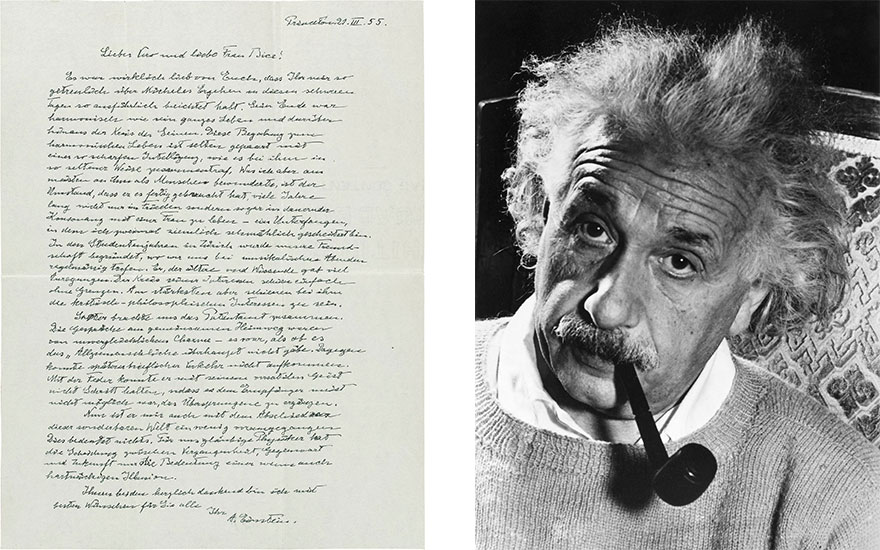 Princeton 21. III. 55.
Lieber Vero und liebe Frau Bice!
Es war wirklich lieb von Euch, dass Ihr mir so
getreulich über Micheles Ergehen in diesen schweren
Tagen so ausführlich berichtet habt. Sein Ende war
harmonisch wie sein ganzes Leben und darüber
hinaus der Kreis der Seinen. Diese Begabung zum
harmonischen Leben ist selten gepaart mit
einer so scharfen Intelligenz, wie es bei ihm in
so seltener Weise zusammentraf. Was ich aber am
meisten an ihm als Menschen bewunderte, ist der
Umstand, dass er es fertig gebracht hat, viele Jahre
lang nicht nur im Frieden sondern sogar in dauernder
Konsonanz mit einer Frau zu leben – ein Unterfangen,
in dem ich zweimal ziemlich schmählich gescheitert bin.
In den Studentenjahren in Zürich wurde unsere Freund-
schaft begründet, wo wir uns bei musikalischen Abenden
regelmässig trafen. Er, der Ältere und Wissende gab viel
Anregungen. Der Kreis seiner Interessen schien einfach
ohne Grenzen. Am stärksten aber schienen bei ihm
die kritisch-philosophischen Interessen zu sein.
Später brachte uns das Patentamt zusammen.
Die Gespräche am gemeinsamen Heimweg waren
von unvergleichlichem Charme – es war, als ob es
das „Allzumenschliche" überhaupt nicht gäbe. Dagegen
konnte später brieflicher Verkehr nicht aufkommen.
Mit der Feder konnte er mit seinem versatilen Geist
nicht Schritt halten, sodass es dem Empfänger meist
nicht möglich war, das Übersprungene zu ergänzen.
Nun ist er mir auch mit dem Abschied von
dieser sonderbaren Welt ein wenig vorausgegangen.
Dies bedeutet nichts. Für uns gläubige Physiker hat
die Scheidung zwischen Vergangenheit, Gegenwart
und Zukunft nur die Bedeutung einer wenn auch
hartnäckigen Illusion.
Ihnen beiden herzlich dankend bin ich mit
besten Wünschen für Sie alle
Ihr
A. Einstein.